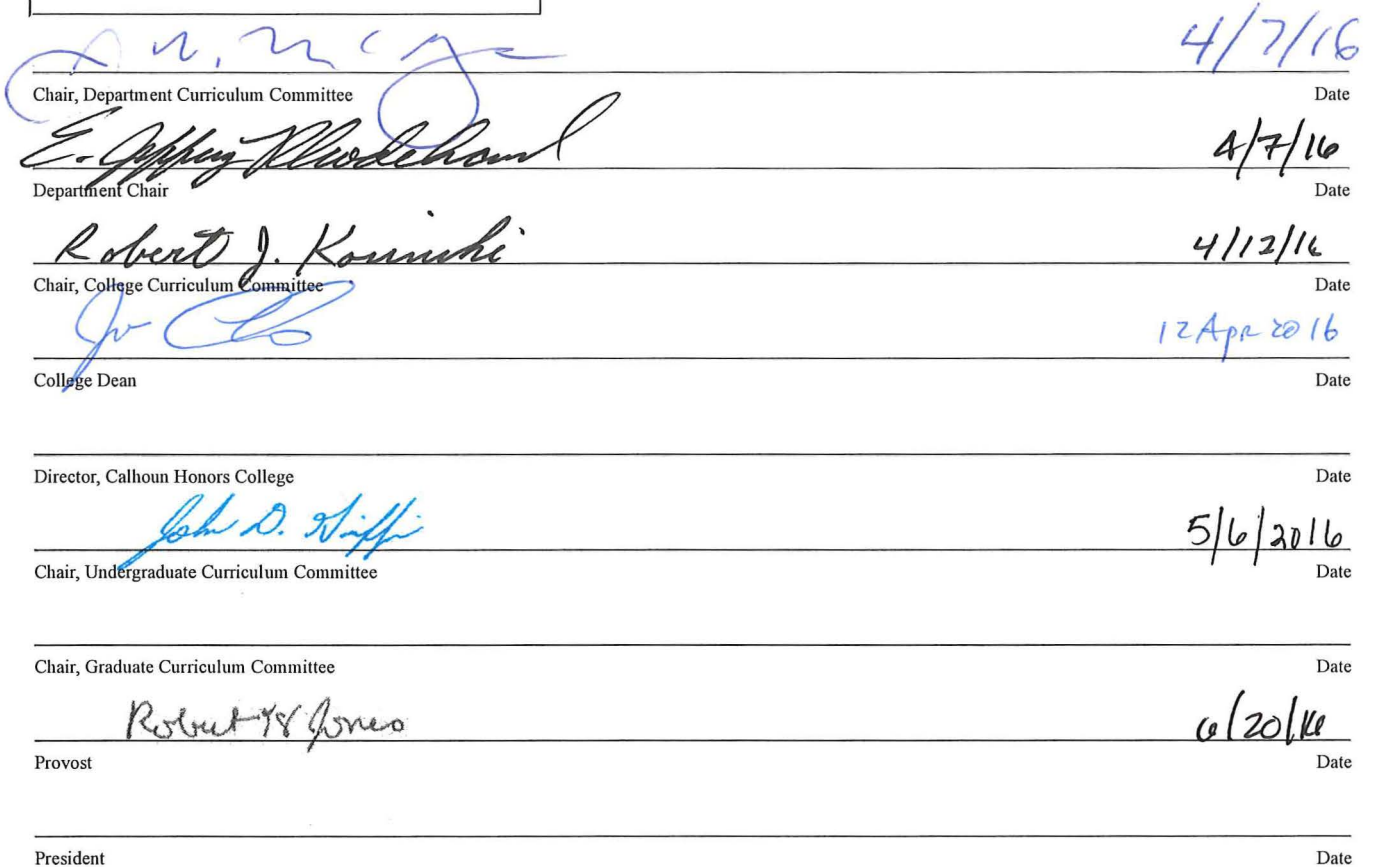 4/7/16
Chair, Department Curriculum Committee Date
E. Jeffery 4/7/16
Department Chair Date
Robert J. 4/12/16
Chair, College Curriculum Committee Date
12 Apr 2016
College Dean Date
Director, Calhoun Honors College Date
John D. Griffin 5/6/2016
Chair, Undergraduate Curriculum Committee Date
Chair, Graduate Curriculum Committee Date
Robert H Jones 6/20/16
Provost Date
President Date